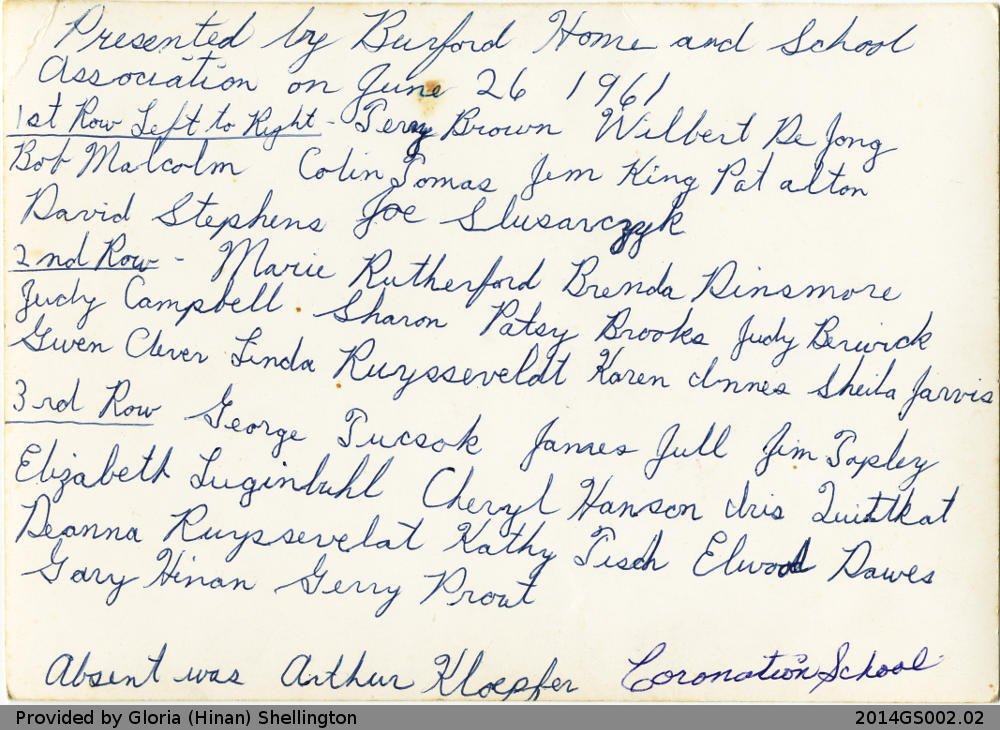 Presented by Burford Home and School
Association on June 26 1961
1st Row Left to Right - Terry Brown Wilbert De Jong
Bob Malcolm Colin Tomas Jim King Pat Alton
David Stephens Joe Slusarczyk
2nd Row - Marie Rutherford Brenda Dinsmore
Judy Campbell Sharon Patsy Brooks Judy Berwick
Gwen Clever Linda Ruysseveldt Karen Innes Sheila Jarvis
3rd Row George Tucsok James Jull Jim Topley
Elizabeth Luginbuhl Cheryl Hanson Iris Quittkat
Deanna Ruysevelat Kathy Tisch Elwood Dawes
Gary Hinan Gerry Prout
Absent was Arthur Kloepfer Coronation School
Provided by Gloria (Hinan) Shellington 2014GS002.02